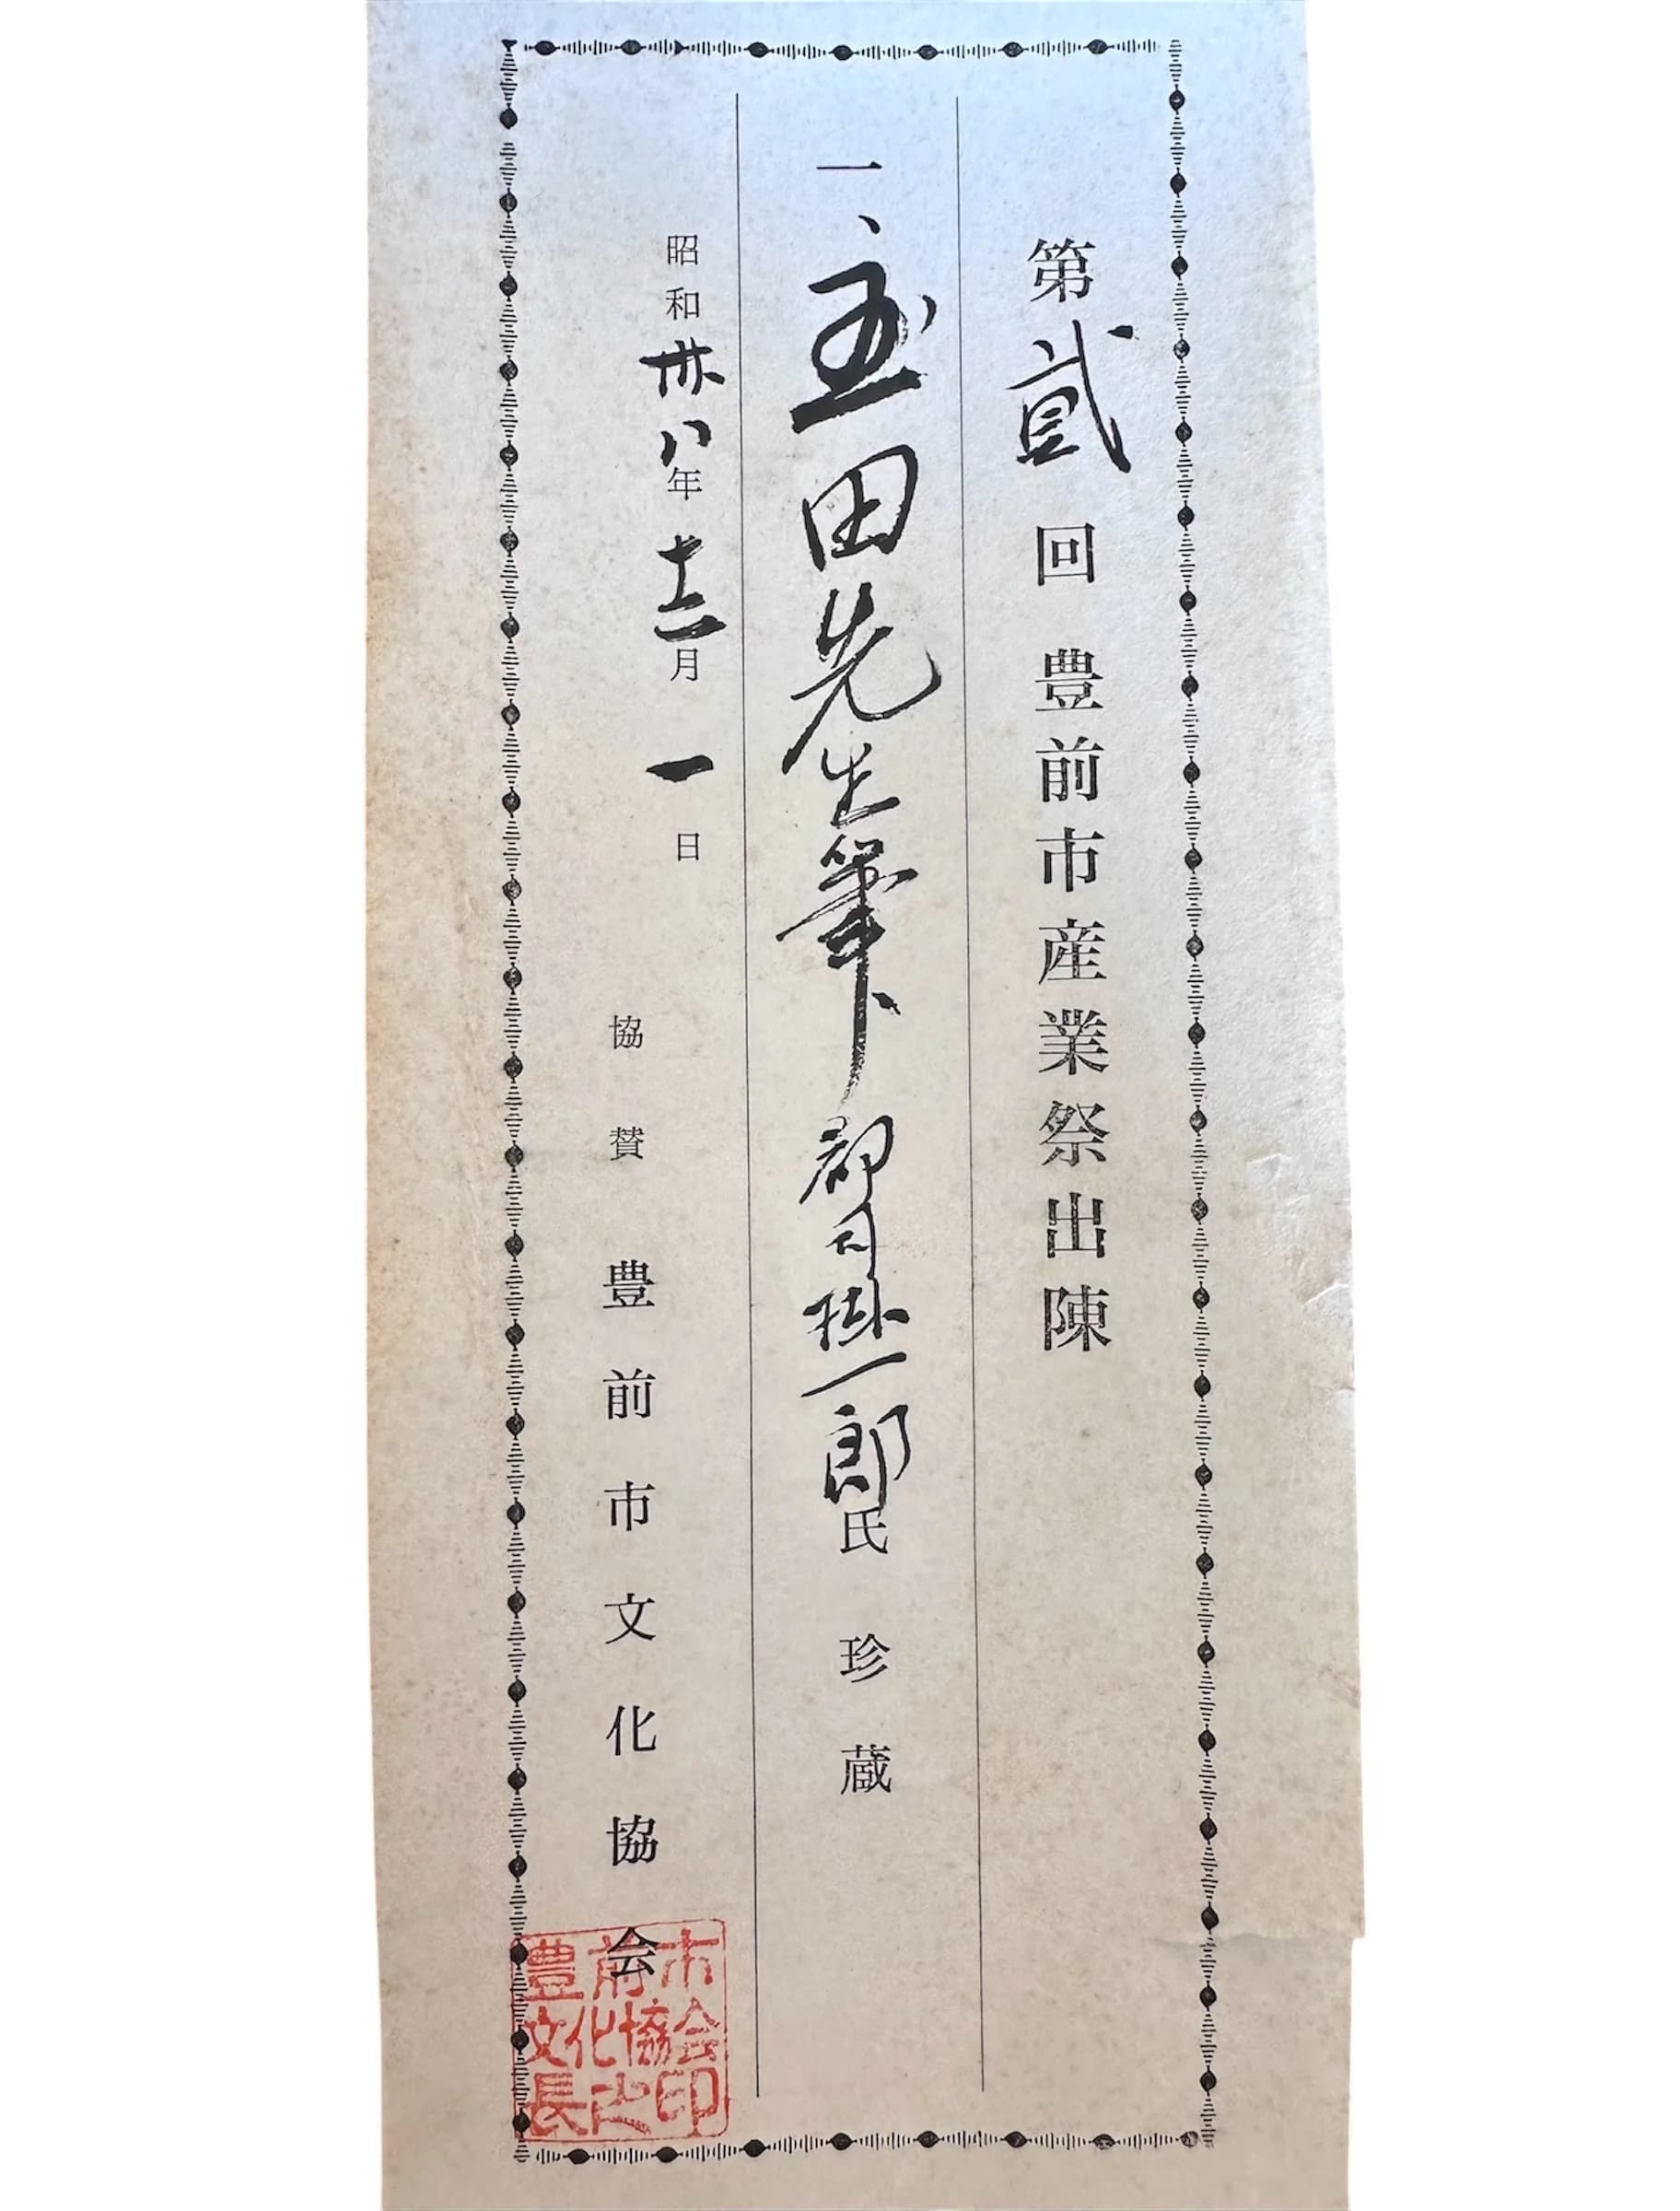 第貳回 豊前市産業祭出陳
一、玉田先生筆 郡司掛一郎氏 珍蔵
昭和卅八年十二月一日
協賛 豊前市文化協会
豊前市
文化協会
長之印